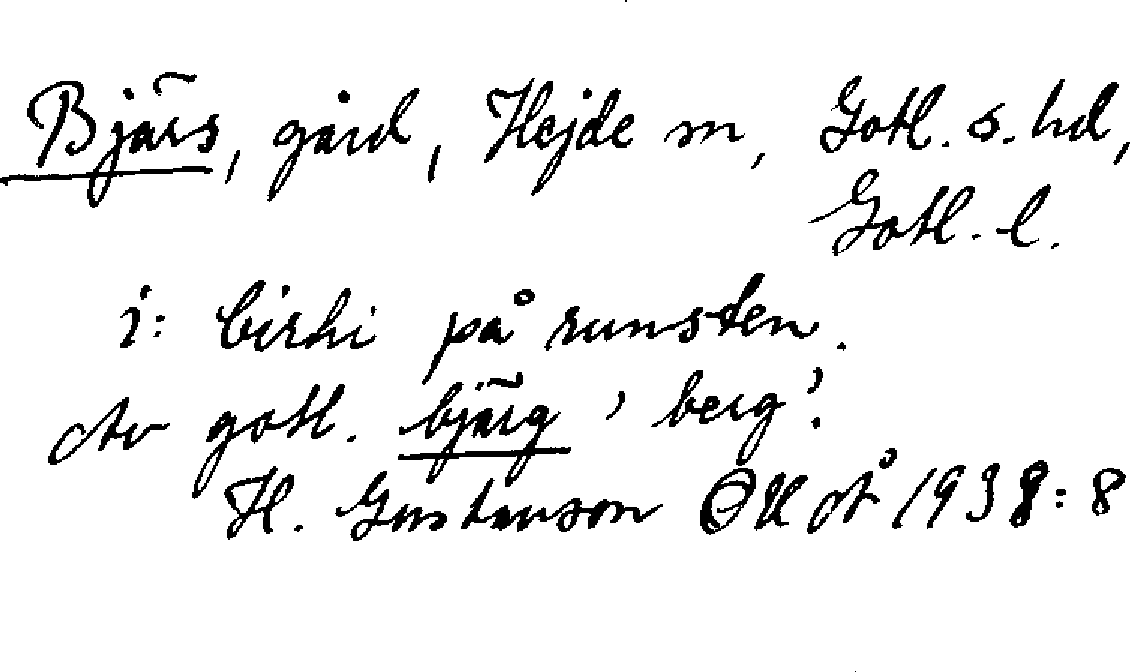 Bjärs, gård, Hejde sn, Gotl. s. hd,
Gotl. l.
i: birki på runsten.
Av gotl. bjärg 'berg'.
H. Gustavson 1938: 8